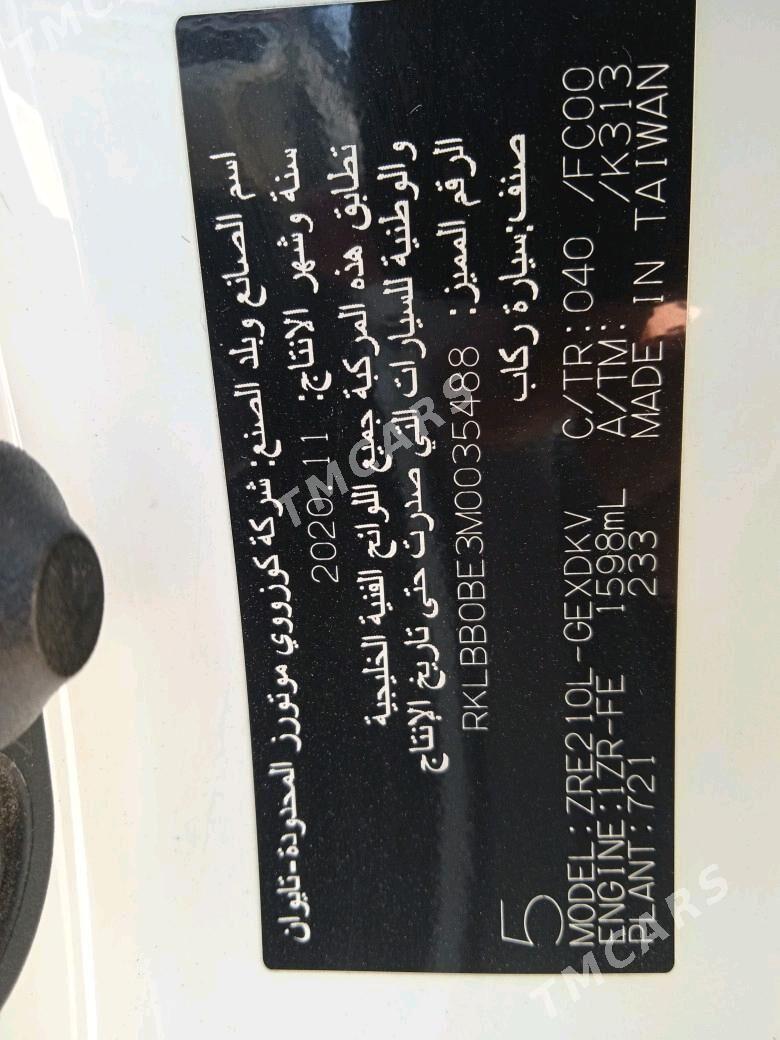 اسم الصانع وبلد الصنع: شركة كوزووي موتورز المحدودة-تايوان
سنة وشهر الانتاج:
2020.11
تطابق هذه المركبة جميع اللوائح الفنية الخليجية
والوطنية للسيارات التي صدرت حتى تاريخ الإنتاج
الرقم المميز: RKLBB0BE3M0035488
صنف:سيارة ركاب
5
MODEL:ZRE210L-GEXDKV C/TR:040 /FC00
ENGINE:1ZR-FE 1598mL A/TM: /K313
PLANT:721 233 MADE IN TAIWAN
TMCARS
TMCARS
TMCARS